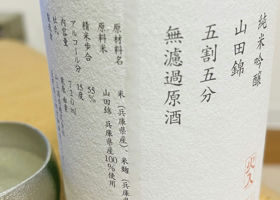 純米吟醸
山田錦
五割五分
無濾過原酒
原材料名 米(兵庫県産)、米麹(兵庫
原料米 山田錦 兵庫県産100%使用
精米歩合 55%
アルコール分 15度
内容量 720ml